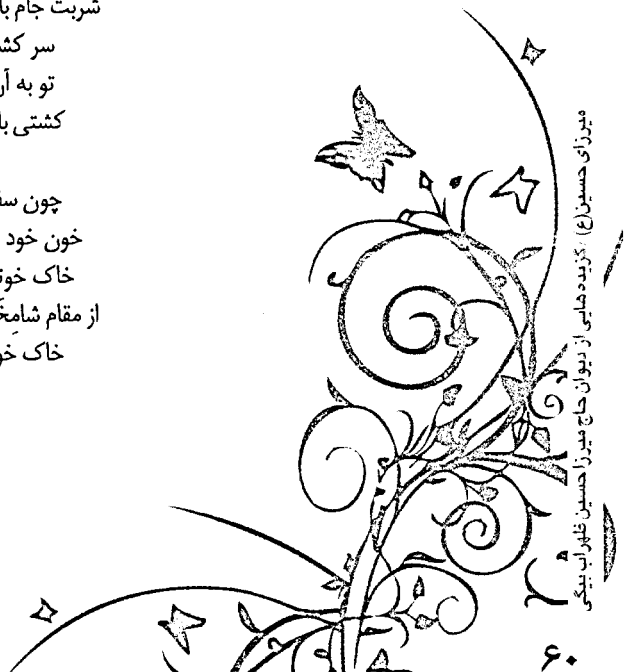 شربت جام با
سر کش
تو به آر
کشتی با
چون سف
خون خود
خاک خون
از مقام شامِخَ
خاک خو
میرزای حسین(ع) گزیده‌هایی از دیوان حاج میرزا حسین ظهراب بیگی
۶۰